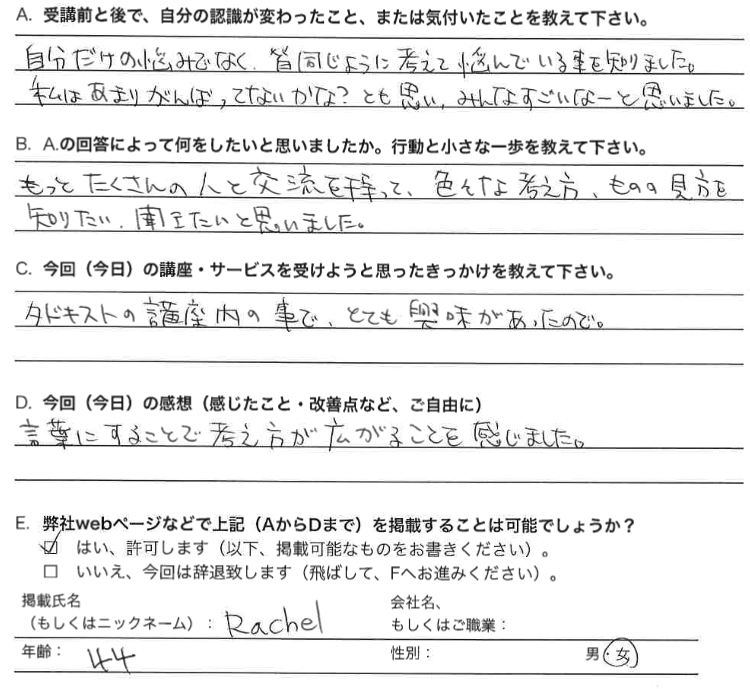 A. 受講前と後で、自分の認識が変わったこと、または気付いたことを教えて下さい。
自分だけの悩みでなく、皆同じように考えて悩んでいる事を知りました。
私はあまりがんばってないかな？とも思い、みんなすごいなーと思いました。
B. A.の回答によって何をしたいと思いましたか。行動と小さな一歩を教えて下さい。
もっとたくさんの人と交流を持って、色々な考え方、ものの見方を
知りたい、聞きたいと思いました。
C. 今回（今日）の講座・サービスを受けようと思ったきっかけを教えて下さい。
タドキストの講座内の事で、とても興味があったので。
D. 今回（今日）の感想（感じたこと・改善点など、ご自由に）
言葉にすることで考え方が広がることを感じました。
E. 弊社webページなどで上記（AからDまで）を掲載することは可能でしょうか？
☑ はい、許可します（以下、掲載可能なものをお書きください）。
□ いいえ、今回は辞退致します（飛ばして、Fへお進みください）。
掲載氏名
（もしくはニックネーム）： Rachel
会社名、
もしくはご職業：
年齢： 44
性別： 男・女